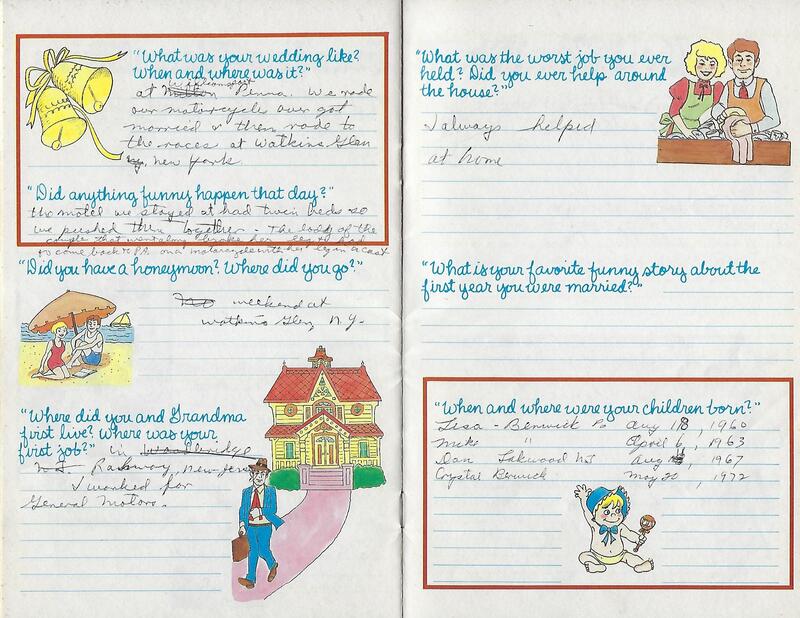 "What was your wedding like?
When and where was it?"
at Milton Penna. We rode
our motorcycle over got
married & then rode to
the races at Watkins Glen
new york.
"Did anything funny happen that day?"
the motel we stayed at had twin beds so
we pushed them together. The lady of the
couple that went along broke her leg & had
to come back to PA. on a motorcycle with her leg in a cast
"Did you have a honeymoon? Where did you go?"
weekend at
Watkins Glen N.Y.
"Where did you and Grandma
first live? Where was your
first job?" in Woodbridge
N.J. Rahway, New Jersey
I worked for
General Motors.
"What was the worst job you ever
held? Did you ever help around
the house?"
I always helped
at home
"What is your favorite funny story about the
first year you were married?"
"When and where were your children born?"
Lisa - Berwick Pa Aug 18, 1960
Mike " April 6, 1963
Dan Lakwood NJ Aug , 1967
Crystal Berwick May 20, 1972